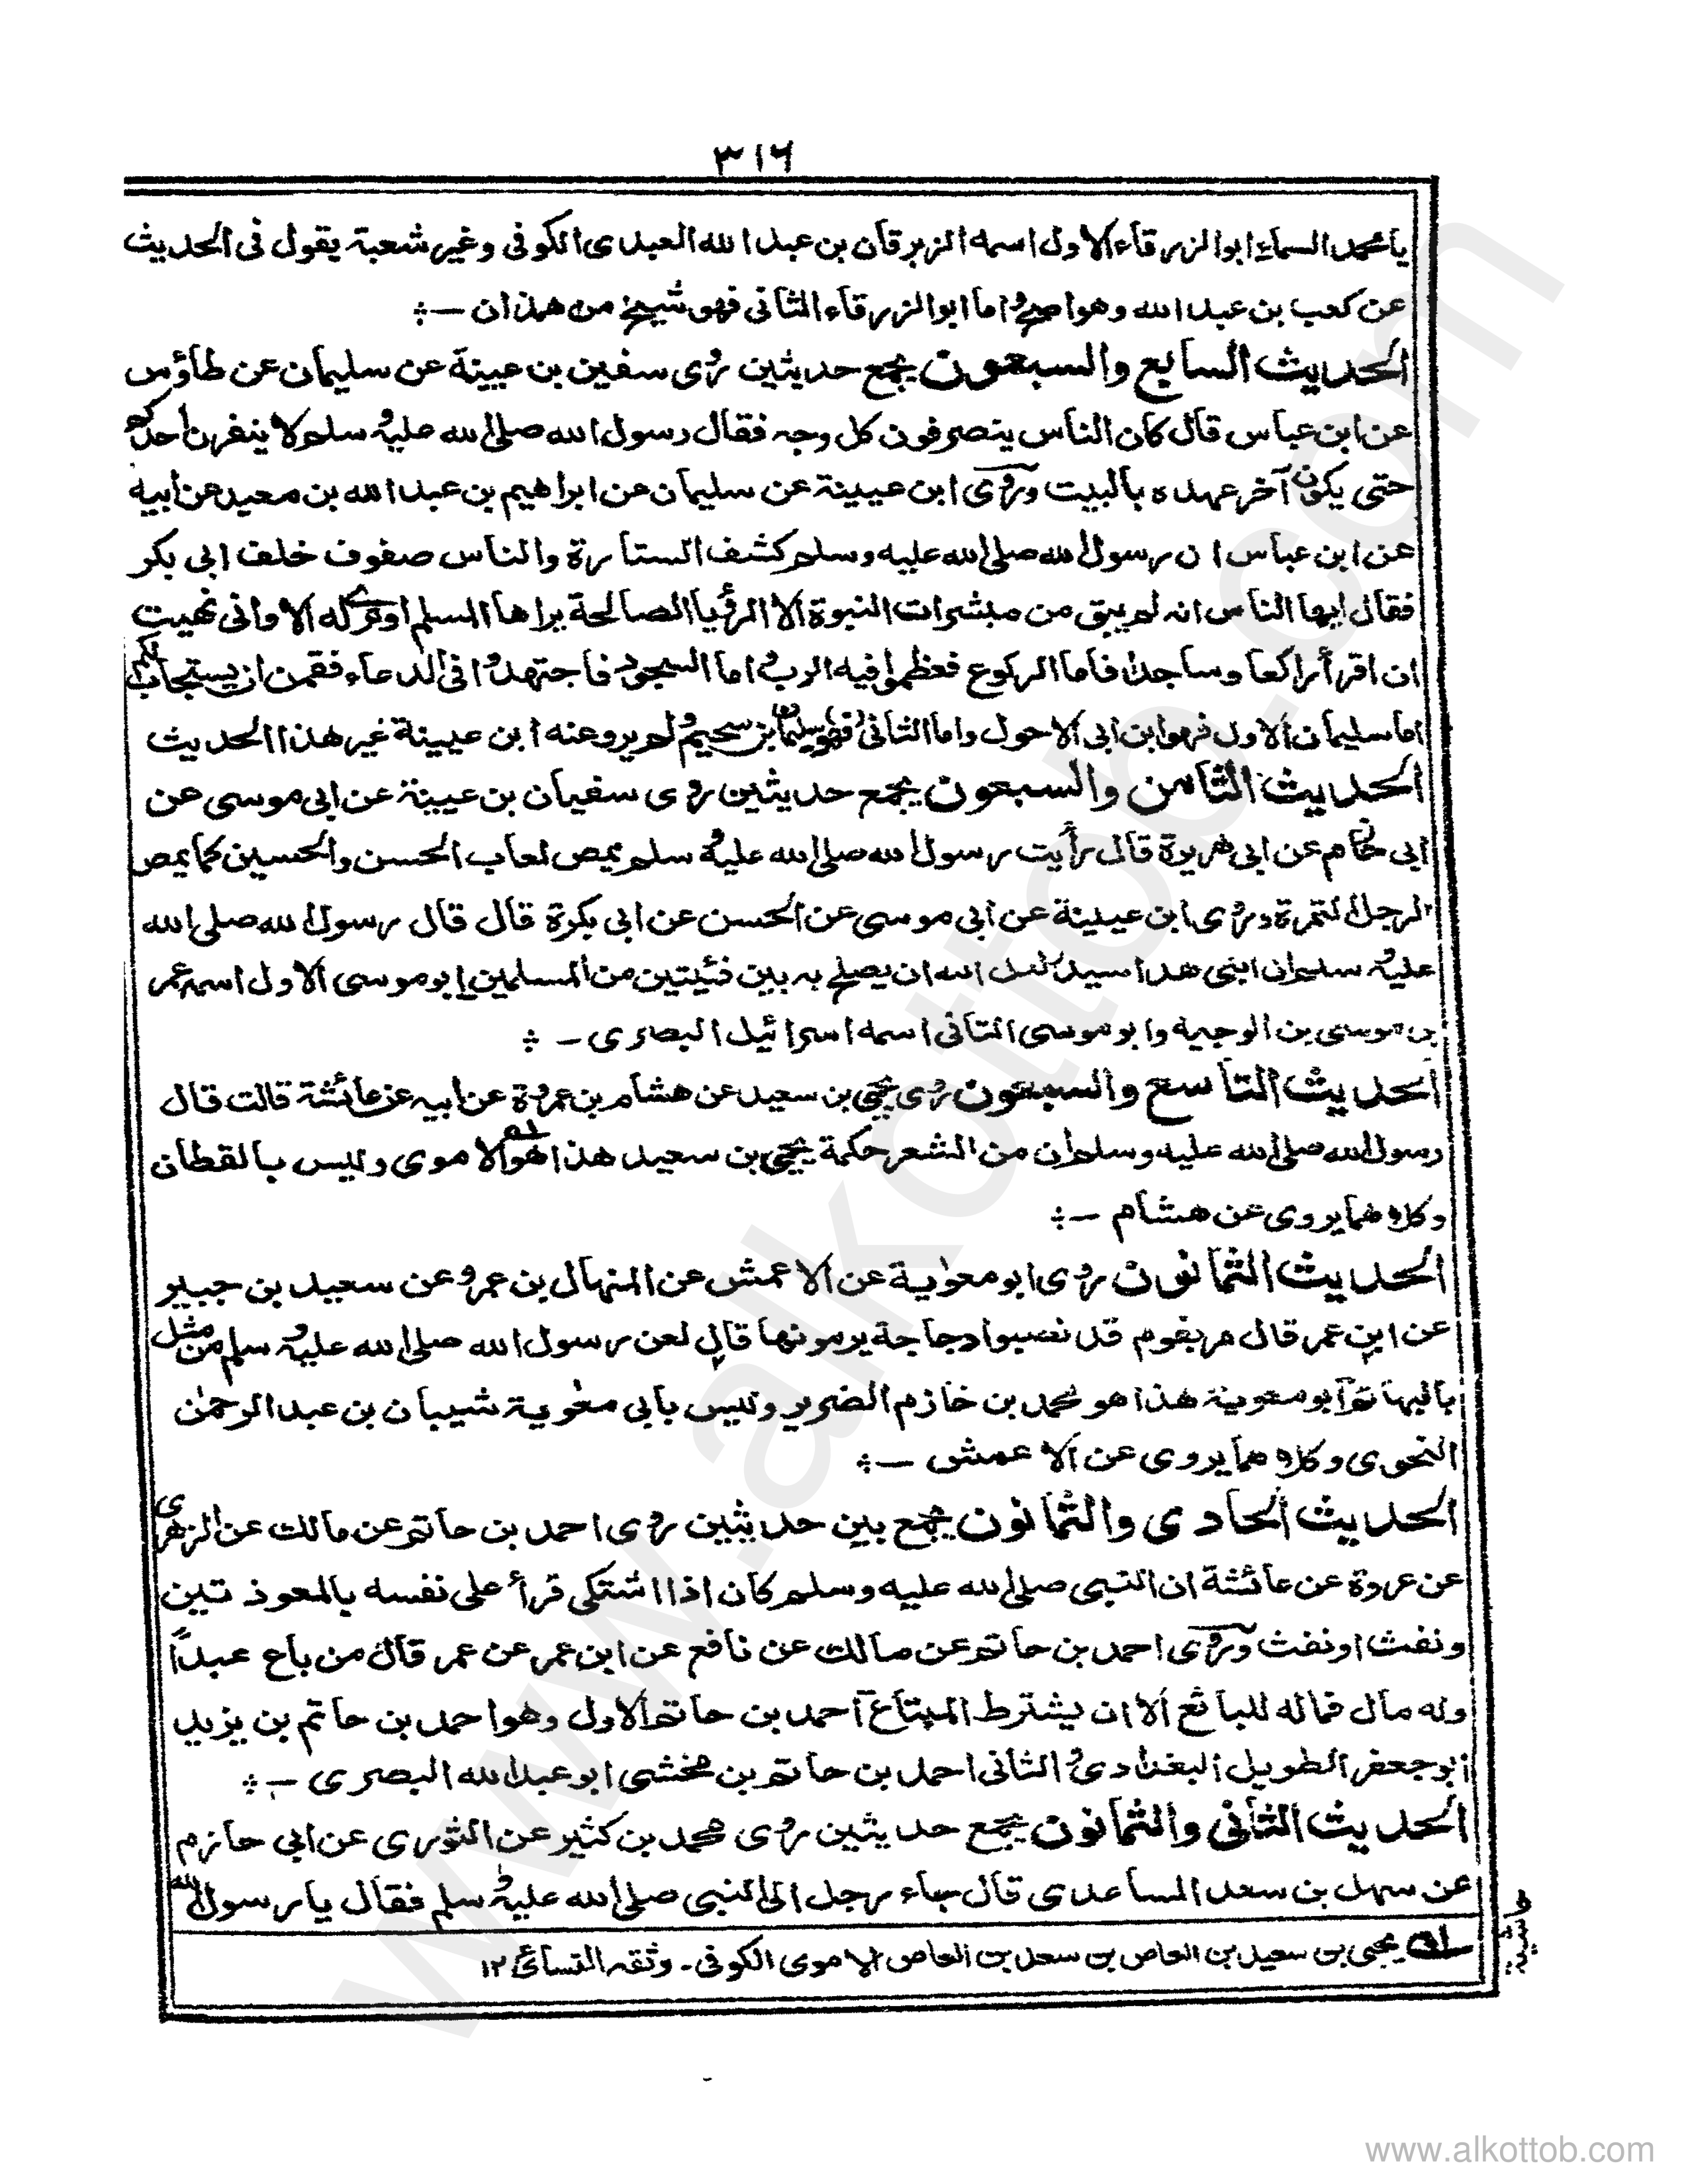 ٣١٦
يا محمد السماء ابو الزرقاء الاول اسمه الزبرقان بن عبد الله العبدى الكوفى وغير شعبة يقول فى الحديث
عن كعب بن عبد الله وهو اصح واما ابو الزرقاء الثانى فهو شيخ من همذان ـ
الحديث السابع والسبعون يجمع حديثين روى سفين بن عيينة عن سليمان عن طاؤس
عن ابن عباس قال كان الناس ينصرفون كل وجه فقال رسول الله صلى الله عليه وسلم لا ينفرن احدكم
حتى يكون آخر عهده بالبيت وروى ابن عيينة عن سليمان عن ابراهيم بن عبد الله بن معبد عن ابيه
عن ابن عباس ان رسول الله صلى الله عليه وسلم كشف الستارة والناس صفوف خلف ابى بكر
فقال ايها الناس انه لم يبق من مبشرات النبوة الا الرؤيا الصالحة يراها المسلم او ترى له الا وانى نهيت
ان اقرأ راكعا وساجدا فاما الركوع فعظموا فيه الرب واما السجود فاجتهدوا فى الدعاء فقمن ان يستجاب لكم
اما سليمان الاول فهو ابن ابى الاحول واما الثانى فهو سليمان بن سحيم ولم يرو عنه ابن عيينة غير هذا الحديث
الحديث الثامن والسبعون يجمع حديثين روى سفيان بن عيينة عن ابى موسى عن
ابى حازم عن ابى هريرة قال رأيت رسول الله صلى الله عليه وسلم يمص لعاب الحسن والحسين كما يمص
الرجل التمرة وروى ابن عيينة عن ابى موسى عن الحسن عن ابى بكرة قال قال رسول الله صلى الله
عليه وسلم ان ابنى هذا سيد لعل الله ان يصلح به بين فئيتين من المسلمين ابو موسى الاول اسمه عمر
بن موسى بن الوجيه وابو موسى الثانى اسمه اسرائيل البصرى ـ
الحديث التاسع والسبعون روى يحيى بن سعيد عن هشام بن عروة عن ابيه عن عائشة قالت قال
رسول الله صلى الله عليه وسلم ان من الشعر حكمة يحيى بن سعيد هذا هو الاموى وليس بالقطان
وكلاهما يروى عن هشام ـ
الحديث الثمانون روى ابو معوٰية عن الاعمش عن المنهال بن عمرو عن سعيد بن جبير
عن ابن عمر قال مر بقوم قد نصبوا دجاجة يرمونها قال لعن رسول الله صلى الله عليه وسلم من مثل
بالبهائم ابو معوية هذا هو محمد بن خازم الضرير وليس بابى معٰوية شيبان بن عبد الرحمٰن
النحوى وكلاهما يروى عن الاعمش ـ
الحديث الحادى والثمانون يجمع بين حديثين روى احمد بن حاتم عن مالك عن الزهرى
عن عروة عن عائشة ان النبى صلى الله عليه وسلم كان اذا اشتكى قرأ على نفسه بالمعوذ تين
ونفث او نفث وروى احمد بن حاتم عن مالك عن نافع عن ابن عمر عن عمر قال من باع عبداً
وله مال فماله للبائع الا ان يشترط المبتاع احمد بن حاتم الاول وهو احمد بن حاتم بن يزيد
ابو جعفر الطويل البغدادى والثانى احمد بن حاتم بن مخشى ابو عبد الله البصرى ـ
الحديث الثانى والثمانون يجمع حديثين روى محمد بن كثير عن الثورى عن ابى حازم
عن سهل بن سعد الساعدى قال جاء رجل الى النبى صلى الله عليه وسلم فقال يا رسول الله
حاشية
لـه يحيى بن سعيد بن العاص بن سعد بن العاص الاموى الكوفى ـ وثقه النسائى ١٢
www.alkottob.com
www.alkottob.com